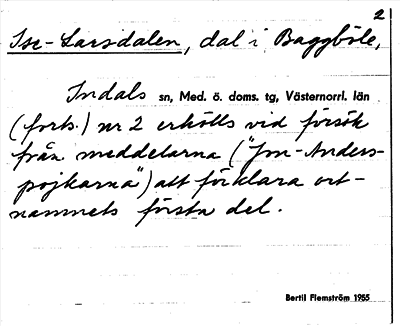 2
Isr-Larsdalen, dal i Baggböle,
Indals sn, Med. ö. doms. tg, Västernorrl. län
(forts.) nr 2 erhölls vid försök
från meddelarna ("Jon-Anders-
pojkarna") att förklara ort-
namnets första del.
Bertil Flemström 1955